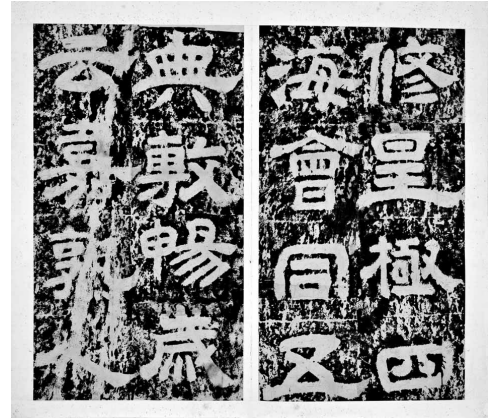 修皇極四
海會同五
典敷暢歲
云嘉孰人